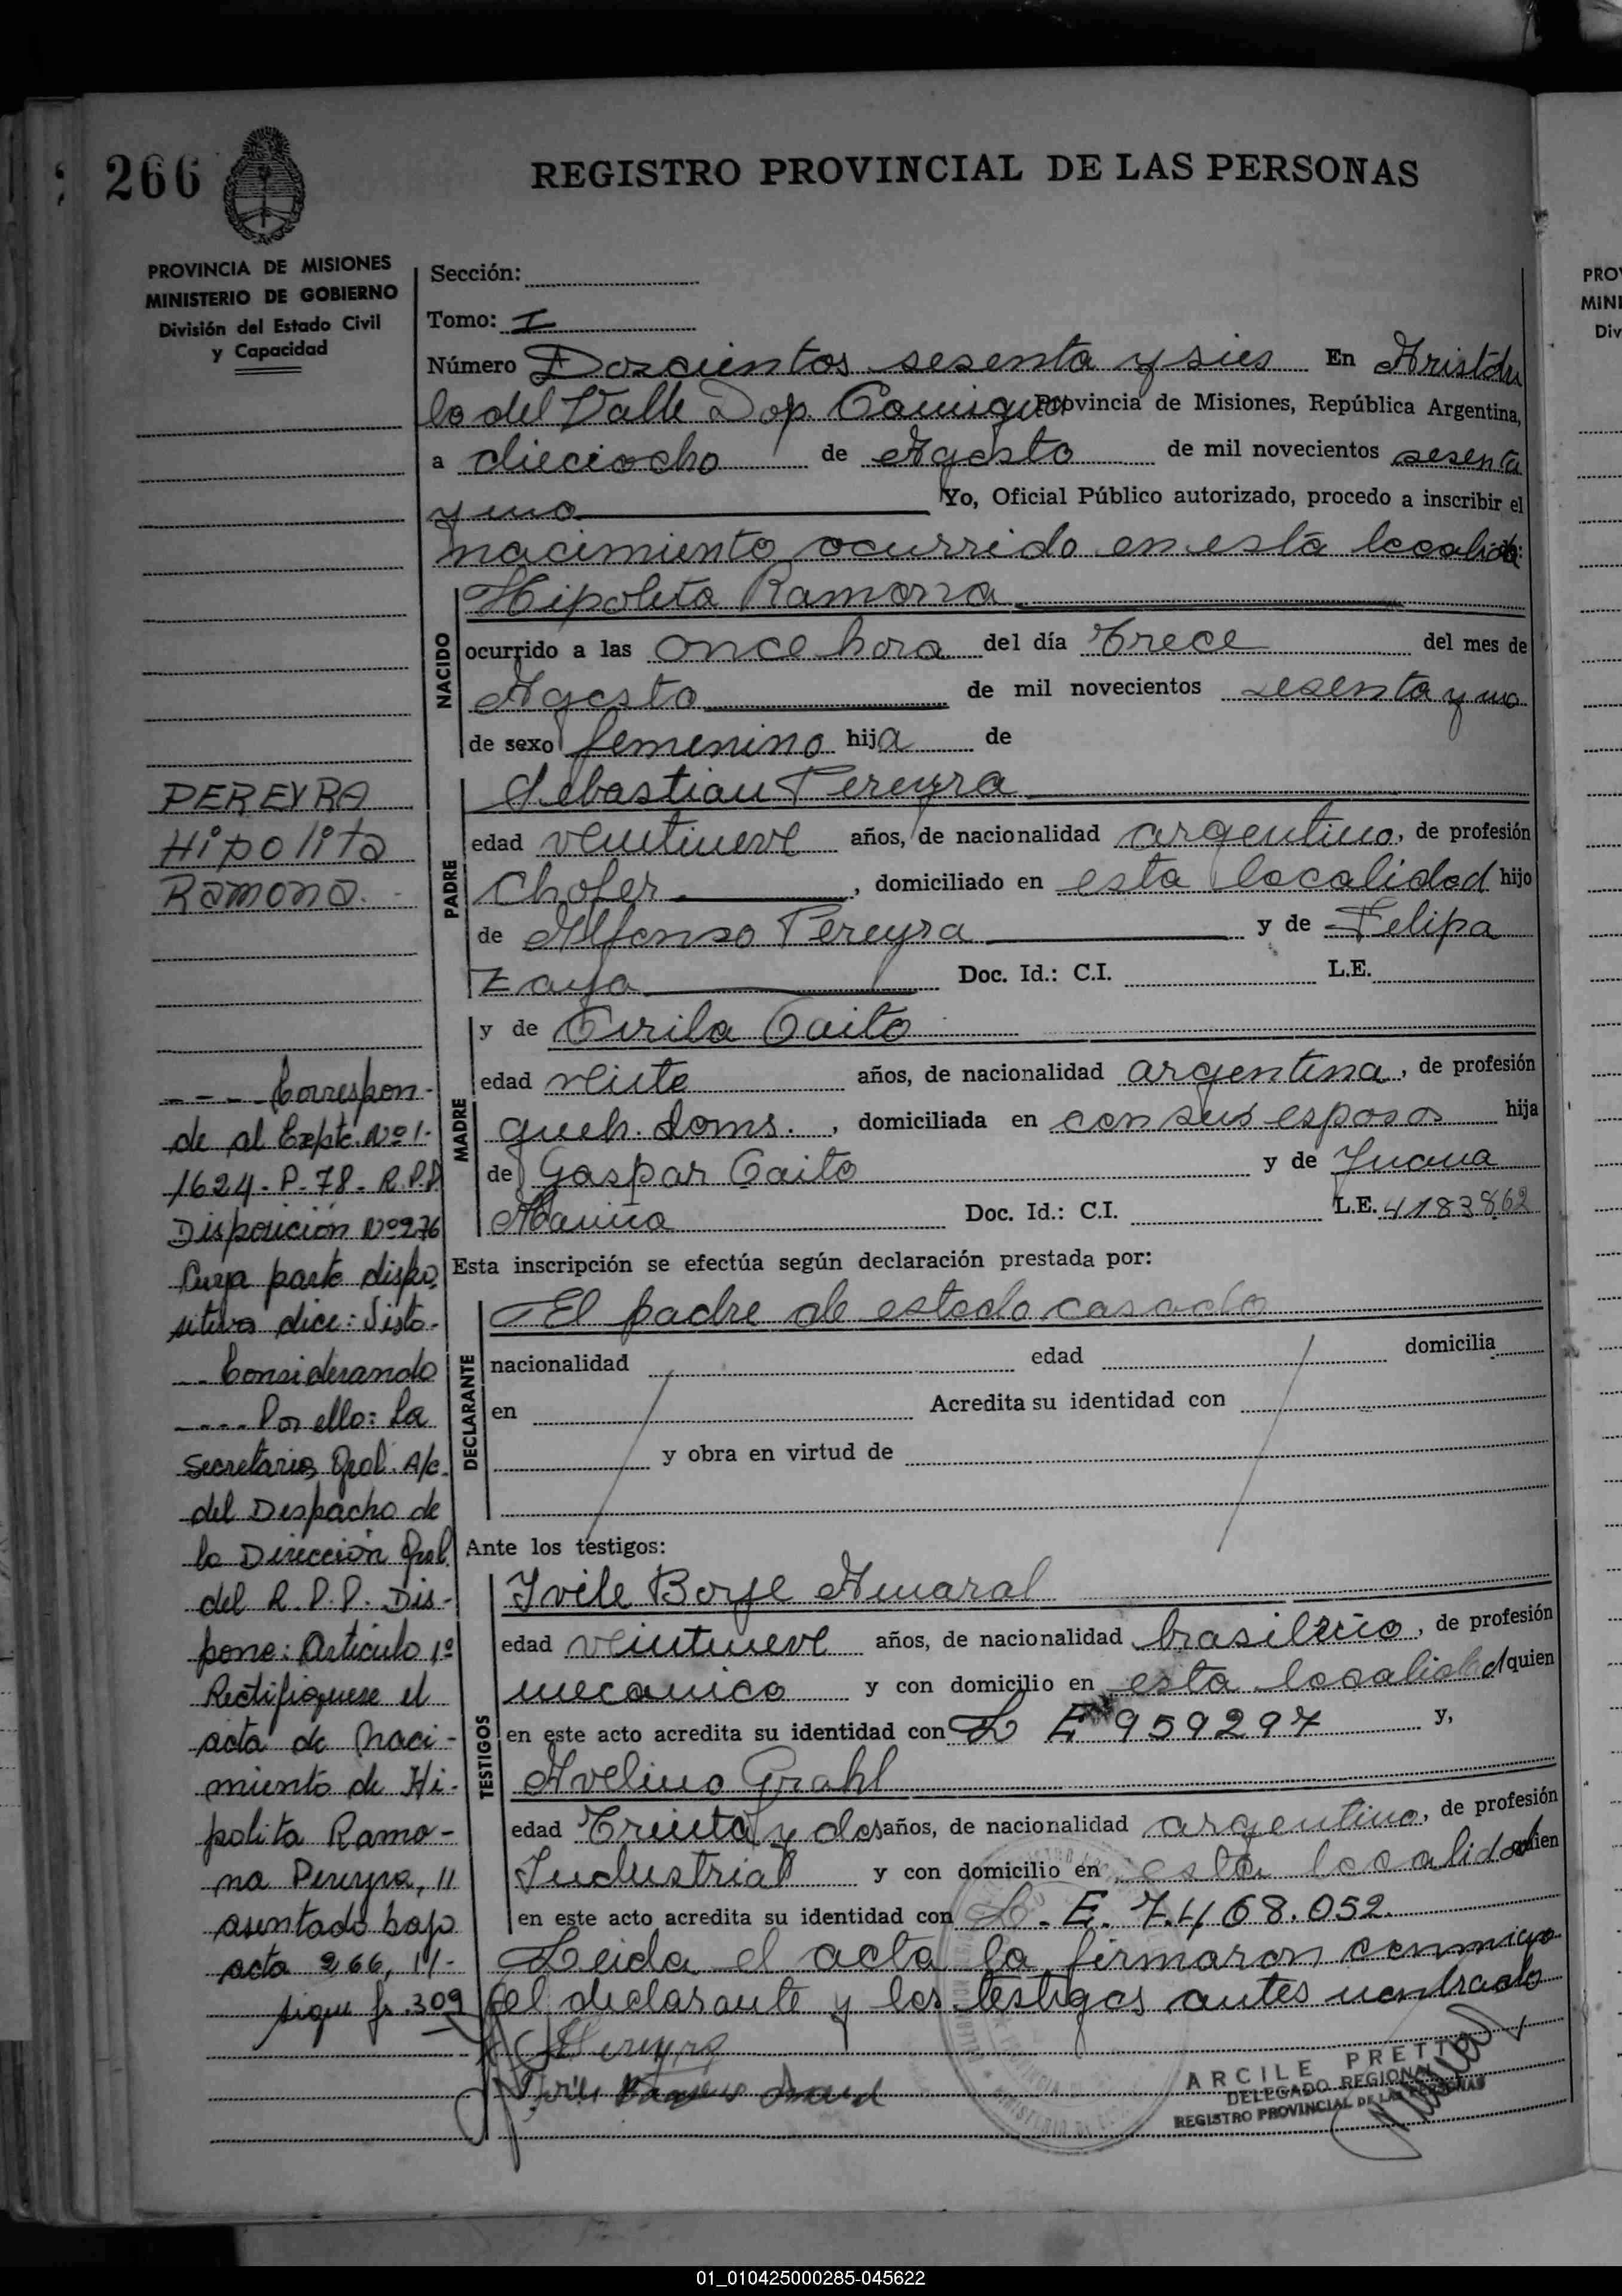 266
REGISTRO PROVINCIAL DE LAS PERSONAS
PROVINCIA DE MISIONES
MINISTERIO DE GOBIERNO
División del Estado Civil
y Capacidad
Sección:
Tomo: I
Número Doscientos sesenta y sies En Aristóbu
lo del Valle Dop. Cainguas Provincia de Misiones, República Argentina,
a dieciocho de Agosto de mil novecientos sesenta
y uno Yo, Oficial Público autorizado, procedo a inscribir el
nacimiento ocurrido en esta localida:
NACIDO
Hipoleta Ramona
ocurrido a las once hora del día Trece del mes de
Agosto de mil novecientos sesenta y uno
de sexo femenino hija de
PADRE
Sebastian Pereyra
edad veintinueve años, de nacionalidad argentino, de profesión
Chofer, domiciliado en esta localidad hijo
de Alfonso Pereyra y de Felipa
Zaya Doc. Id.: C.I. L.E.
MADRE
y de Cirila Gaito
edad veinte años, de nacionalidad argentina, de profesión
queh. doms., domiciliada en con sus esposos hija
de Gaspar Gaito y de Juana
Doc. Id.: C.I. L.E. 4183862
Esta inscripción se efectúa según declaración prestada por:
DECLARANTE
El padre de estado casado
nacionalidad edad domicilia
en Acredita su identidad con
y obra en virtud de
Ante los testigos:
TESTIGOS
Ivile Borje Amaral
edad veintinueve años, de nacionalidad brasileño, de profesión
mecanico y con domicilio en esta localidad quien
en este acto acredita su identidad con L E 959297 y,
Avelino Grahl
edad Treinta y dos años, de nacionalidad argentino, de profesión
Industrial y con domicilio en esta localidad quien
en este acto acredita su identidad con L. E. 7.468.052.
Leida el acta la firmaron conmigo
el declarante y los testigos antes
Pereyra
ARCILE PRETTO
DELEGADO REGIONAL
REGISTRO PROVINCIAL DE LAS PERSONAS
PEREYRA
Hipolita
Ramona.-
---- Correspon-
de al Expte. Nº 1-
1624-P-78-R.P.P
Disposición Nº 276
Cuya parte dispo-
sitiva dice: Visto-
-- Considerando
---- Por ello: La
Secretaria Gral. A/c.
del Despacho de
la Dirección Gral.
del R.P.P. Dis-
pone: Artículo 1º
Rectifiquese el
acta de naci-
miento de Hi-
polita Ramo-
na Pereyra, 11
asentado bajo
acta 266, 11-
sigue fs. 309
01_010425000285-045622